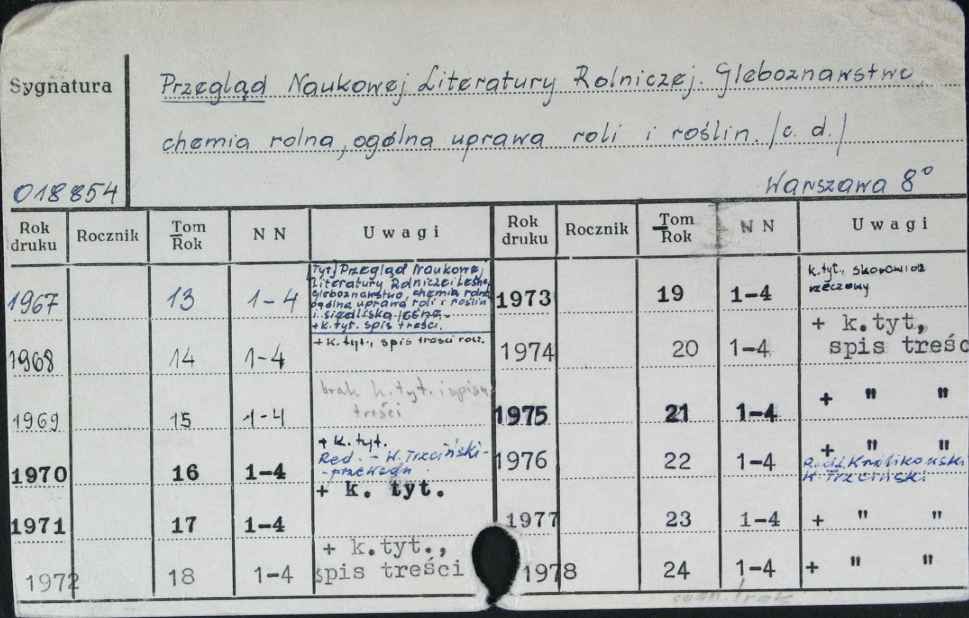 Sygnatura
Przegląd Naukowej Literatury Rolniczej. Gleboznawstwo,
chemia rolna, ogólna uprawa roli i roślin. /c. d./
018854
Warszawa 8°
Rok druku Rocznik Tom Rok N N Uwagi Rok druku Rocznik Tom Rok N N Uwagi
1967 13 1-4
[Tyt.] Przegląd Naukowej
Literatury Rolniczej i Leśnej
Gleboznawstwo, chemia rolna
ogólna uprawa roli i roślin
i siedliska leśne.-
+ k. tyt. spis treści.
1973 19 1-4
k. tyt., skorowidz
rzeczowy
1968 14 1-4 + k. tyt., spis treści rocz.
1974 20 1-4 + k. tyt,
spis treśc
1969 15 1-4 brak k. tyt. i spisu
treści
1975 21 1-4 + " "
1970 16 1-4 + k. tyt.
Red. - W. Trzciński-
+ k. tyt.
1976 22 1-4 + " "
Królikowski
W. Trzciński
1971 17 1-4
1977 23 1-4 + " "
1972 18 1-4 + k. tyt.,
spis treści
1978 24 1-4 + " "